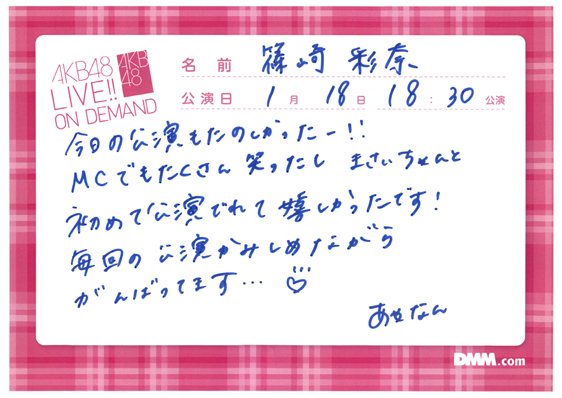 AKB48
LIVE!!
ON DEMAND
AKB
48
名前 篠崎 彩奈
公演日 1月 18日 18:30 公演
今日の公演もたのしかったー!!
MCでもたくさん 笑ったし まさいちゃんと
初めて公演でれて 嬉しかったです!
毎回の公演かみしめながら
がんばってます…♡
あやなん
DMM.com